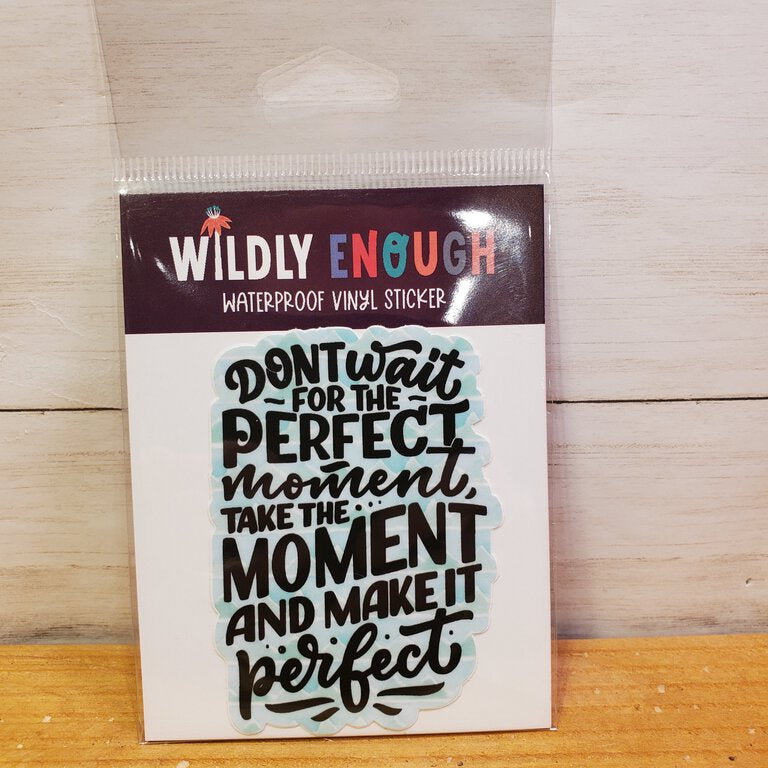 WILDLY ENOUGH
WATERPROOF VINYL STICKER
DONT wait
~FOR THE~
PERFECT
moment,
TAKE THE...
MOMENT
AND MAKE IT
perfect